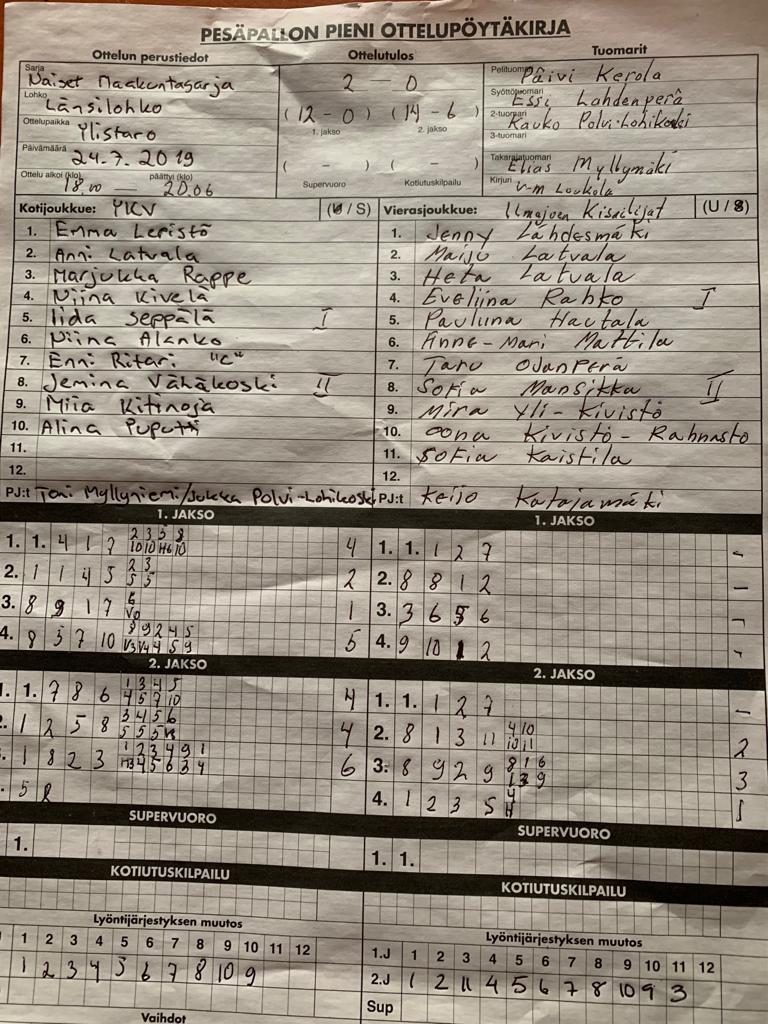 PESÄPALLON PIENI OTTELUPÖYTÄKIRJA
Ottelun perustiedot
Sarja
Naiset Maakuntasarja
Lohko
Länsilohko
Ottelupaikka
Ylistaro
Päivämäärä
24.7.2019
Ottelu alkoi (klo) päättyi (klo)
18.00 — 20.06
Ottelutulos
2 - 0
(12-0) (14-6)
1. jakso 2. jakso
( - ) ( - )
Supervuoro Kotiutuskilpailu
Tuomarit
Pelituomari Päivi Kerola
Syöttötuomari Essi Lahdenperä
2-tuomari Kauko Polvi-Lohikoski
3-tuomari
Takarajatuomari Elias Myllymäki
Kirjuri V-M Loukola
Kotijoukkue: YKV (U / S)
1. Emma Lepistö
2. Anni Latvala
3. Marjukka Rappe
4. Niina Kivelä
5. Iida Seppälä I
6. Niina Alanko
7. Enni Ritari "C"
8. Jemina Vähäkoski II
9. Miia Kitinoja
10. Alina Puputti
11.
12.
PJ:t Toni Myllyniemi/Jukka Polvi-Lohikoski
Vierasjoukkue: Ilmajoen Kisailijat (U / S)
1. Jenny Lähdesmäki
2. Maiju Latvala
3. Heta Latvala
4. Eveliina Rahko I
5. Pauliina Hautala
6. Anne-Mari Mattila
7. Taru Ojanperä
8. Sofia Mansikka II
9. Mira Yli-Kivistö
10. Oona Kivistö-Rahnasto
11. Sofia Kaistila
12.
PJ:t Keijo Katajamäki
1. JAKSO
1. 1. 4 1 7 2 3 5 8 4
10 10 H6 10
2. 1 1 4 5 2 3 2
5 5
3. 8 9 1 7 6 1
V0
4. 8 5 7 10 8 9 2 4 5 5
V3 V4 4 5 9
1. JAKSO
1. 1. 1 2 7 -
2. 8 8 1 2 -
3. 3 6 5 6 -
4. 9 10 1 2 -
2. JAKSO
1. 1. 7 8 6 1 3 4 5 4
4 5 7 10
1 2 5 8 3 4 5 6 4
5 5 5
1 8 2 3 1 2 3 4 9 1 6
H3 4 5 6 3 4
5 8
2. JAKSO
1. 1. 1 2 7 -
2. 8 1 3 11 4 10 2
10 11
3. 8 9 2 9 8 1 6 3
1 3 9
4. 1 2 3 5 4 1
H
SUPERVUORO
1.
SUPERVUORO
1. 1.
KOTIUTUSKILPAILU
KOTIUTUSKILPAILU
Lyöntijärjestyksen muutos
1 2 3 4 5 6 7 8 9 10 11 12
1 2 3 4 5 6 7 8 10 9
Vaihdot
Lyöntijärjestyksen muutos
1.J 1 2 3 4 5 6 7 8 9 10 11 12
2.J 1 2 11 4 5 6 7 8 10 9 3
Sup